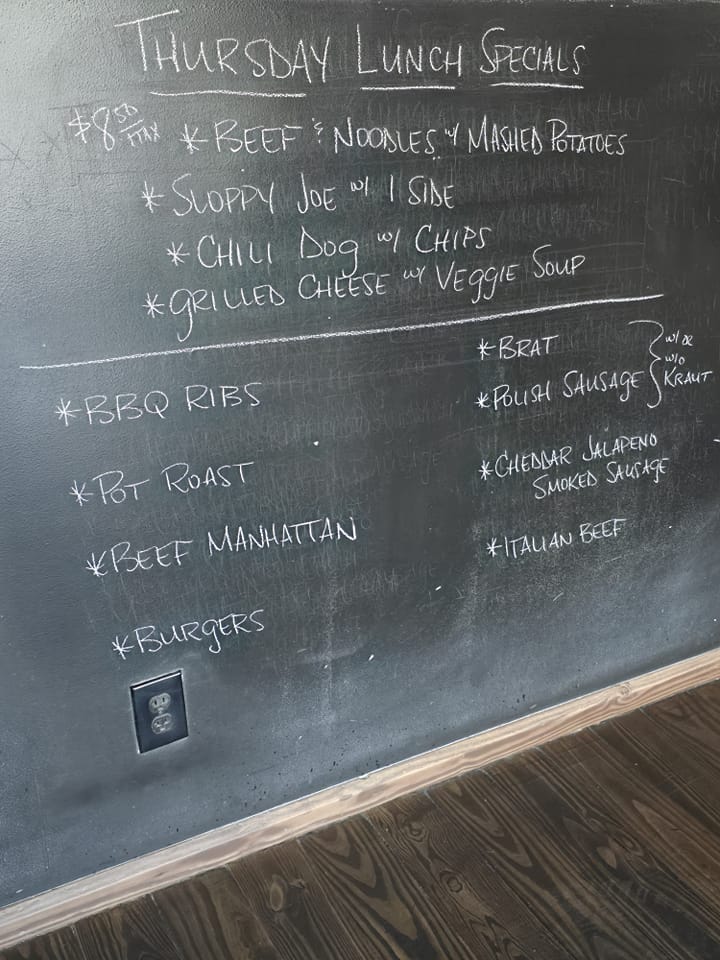 THURSDAY LUNCH SPECIALS
$8.50 +TAX * BEEF & NOODLES w/ MASHED POTATOES
* SLOPPY JOE w/ 1 SIDE
* CHILI DOG w/ CHIPS
* GRILLED CHEESE w/ VEGGIE SOUP
* BBQ RIBS
* POT ROAST
* BEEF MANHATTAN
* BURGERS
* BRAT
* POLISH SAUSAGE
w/ OR
w/o
KRAUT
* CHEDDAR JALAPENO
SMOKED SAUSAGE
* ITALIAN BEEF